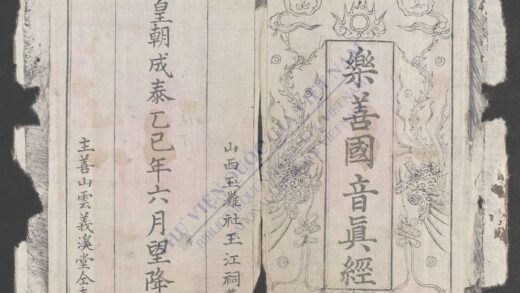 樂善國音眞經
山西玉灘社玉江祠
皇朝成泰乙巳年六月望降
主善山雲義溪堂仝
THƯ VIỆN QUỐC GIA VIỆT NAM